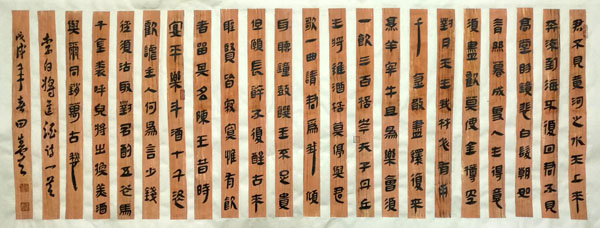 君不見黃河之水天上來
奔流到海不復回君不見
高堂明鏡悲白髮朝如
青絲暮成雪人生得意
須盡歡莫使金樽空
對月天生我材必有用
千金散盡還復來
烹羊宰牛且為樂會須
一飲三百杯岑夫子丹丘
生將進酒杯莫停與君
歌一曲請君為我傾
耳聽鐘鼓饌玉不足貴
但願長醉不復醒古來
聖賢皆寂寞惟有飲
者留其名陳王昔時
宴平樂斗酒十千恣
歡謔主人何為言少錢
徑須沽取對君酌五花馬
千金裘呼兒將出換美酒
與爾同銷萬古愁
李白將進酒詩一首
戊戌年春田